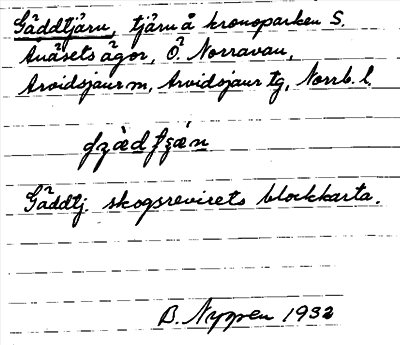 Gäddtjärn, tjärn å kronoparken S.
Auåsets ägor, Ö. Norravan,
Arvidsjaur m, Arvidsjaur tg, Norrb. l.
Gäddtj. skogsrevirets blockkarta.
B. Nyppen 1932